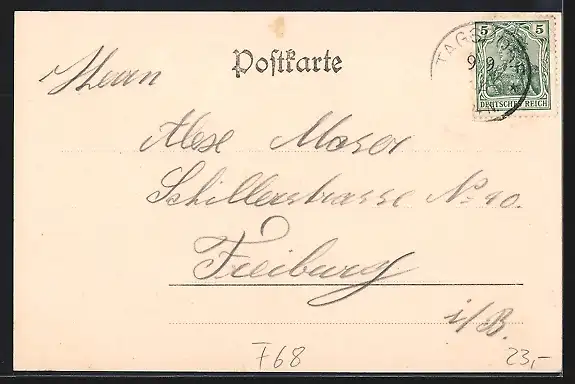 Postkarte
5 5
DEUTSCHES REICH
TAGE
9 9
Herrn
Alex Moser
Schillerstrasse No 40.
Freiburg
i/B.
F68
23,-